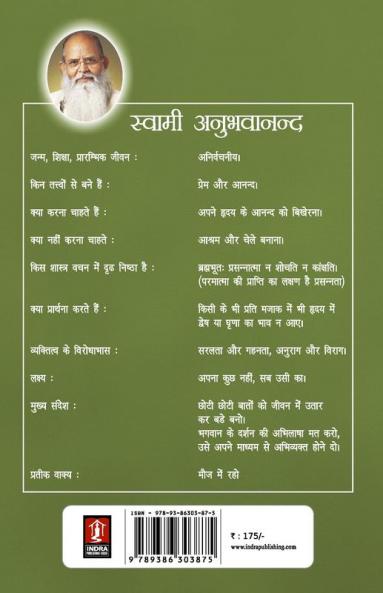 स्वामी अनुभवानन्द
जन्म, शिक्षा, प्रारम्भिक जीवन : अनिर्वचनीय।
किन तत्त्वों से बने हैं : प्रेम और आनन्द।
क्या करना चाहते हैं : अपने हृदय के आनन्द को बिखेरना।
क्या नहीं करना चाहते : आश्रम और चेले बनाना।
किस शास्त्र वचन में दृढ निष्ठा है : ब्रह्मभूतः प्रसन्नात्मा न शोचति न कांक्षति।
(परमात्मा की प्राप्ति का लक्षण है प्रसन्नता)
क्या प्रार्थना करते हैं : किसी के भी प्रति मजाक में भी हृदय में
द्वेष या घृणा का भाव न आए।
व्यक्तित्व के विरोधाभास : सरलता और गहनता, अनुराग और विराग।
लक्ष्य : अपना कुछ नहीं, सब उसी का।
मुख्य संदेश : छोटी छोटी बातों को जीवन में उतार
कर बडे बनो।
भगवान के दर्शन की अभिलाषा मत करो,
उसे अपने माध्यम से अभिव्यक्त होने दो।
प्रतीक वाक्य : मौज में रहो
ISBN - 978-93-86303-87-5
9 789386 303875
INDRA
PUBLISHING HOUSE
₹ : 175/-
www.indrapublishing.com